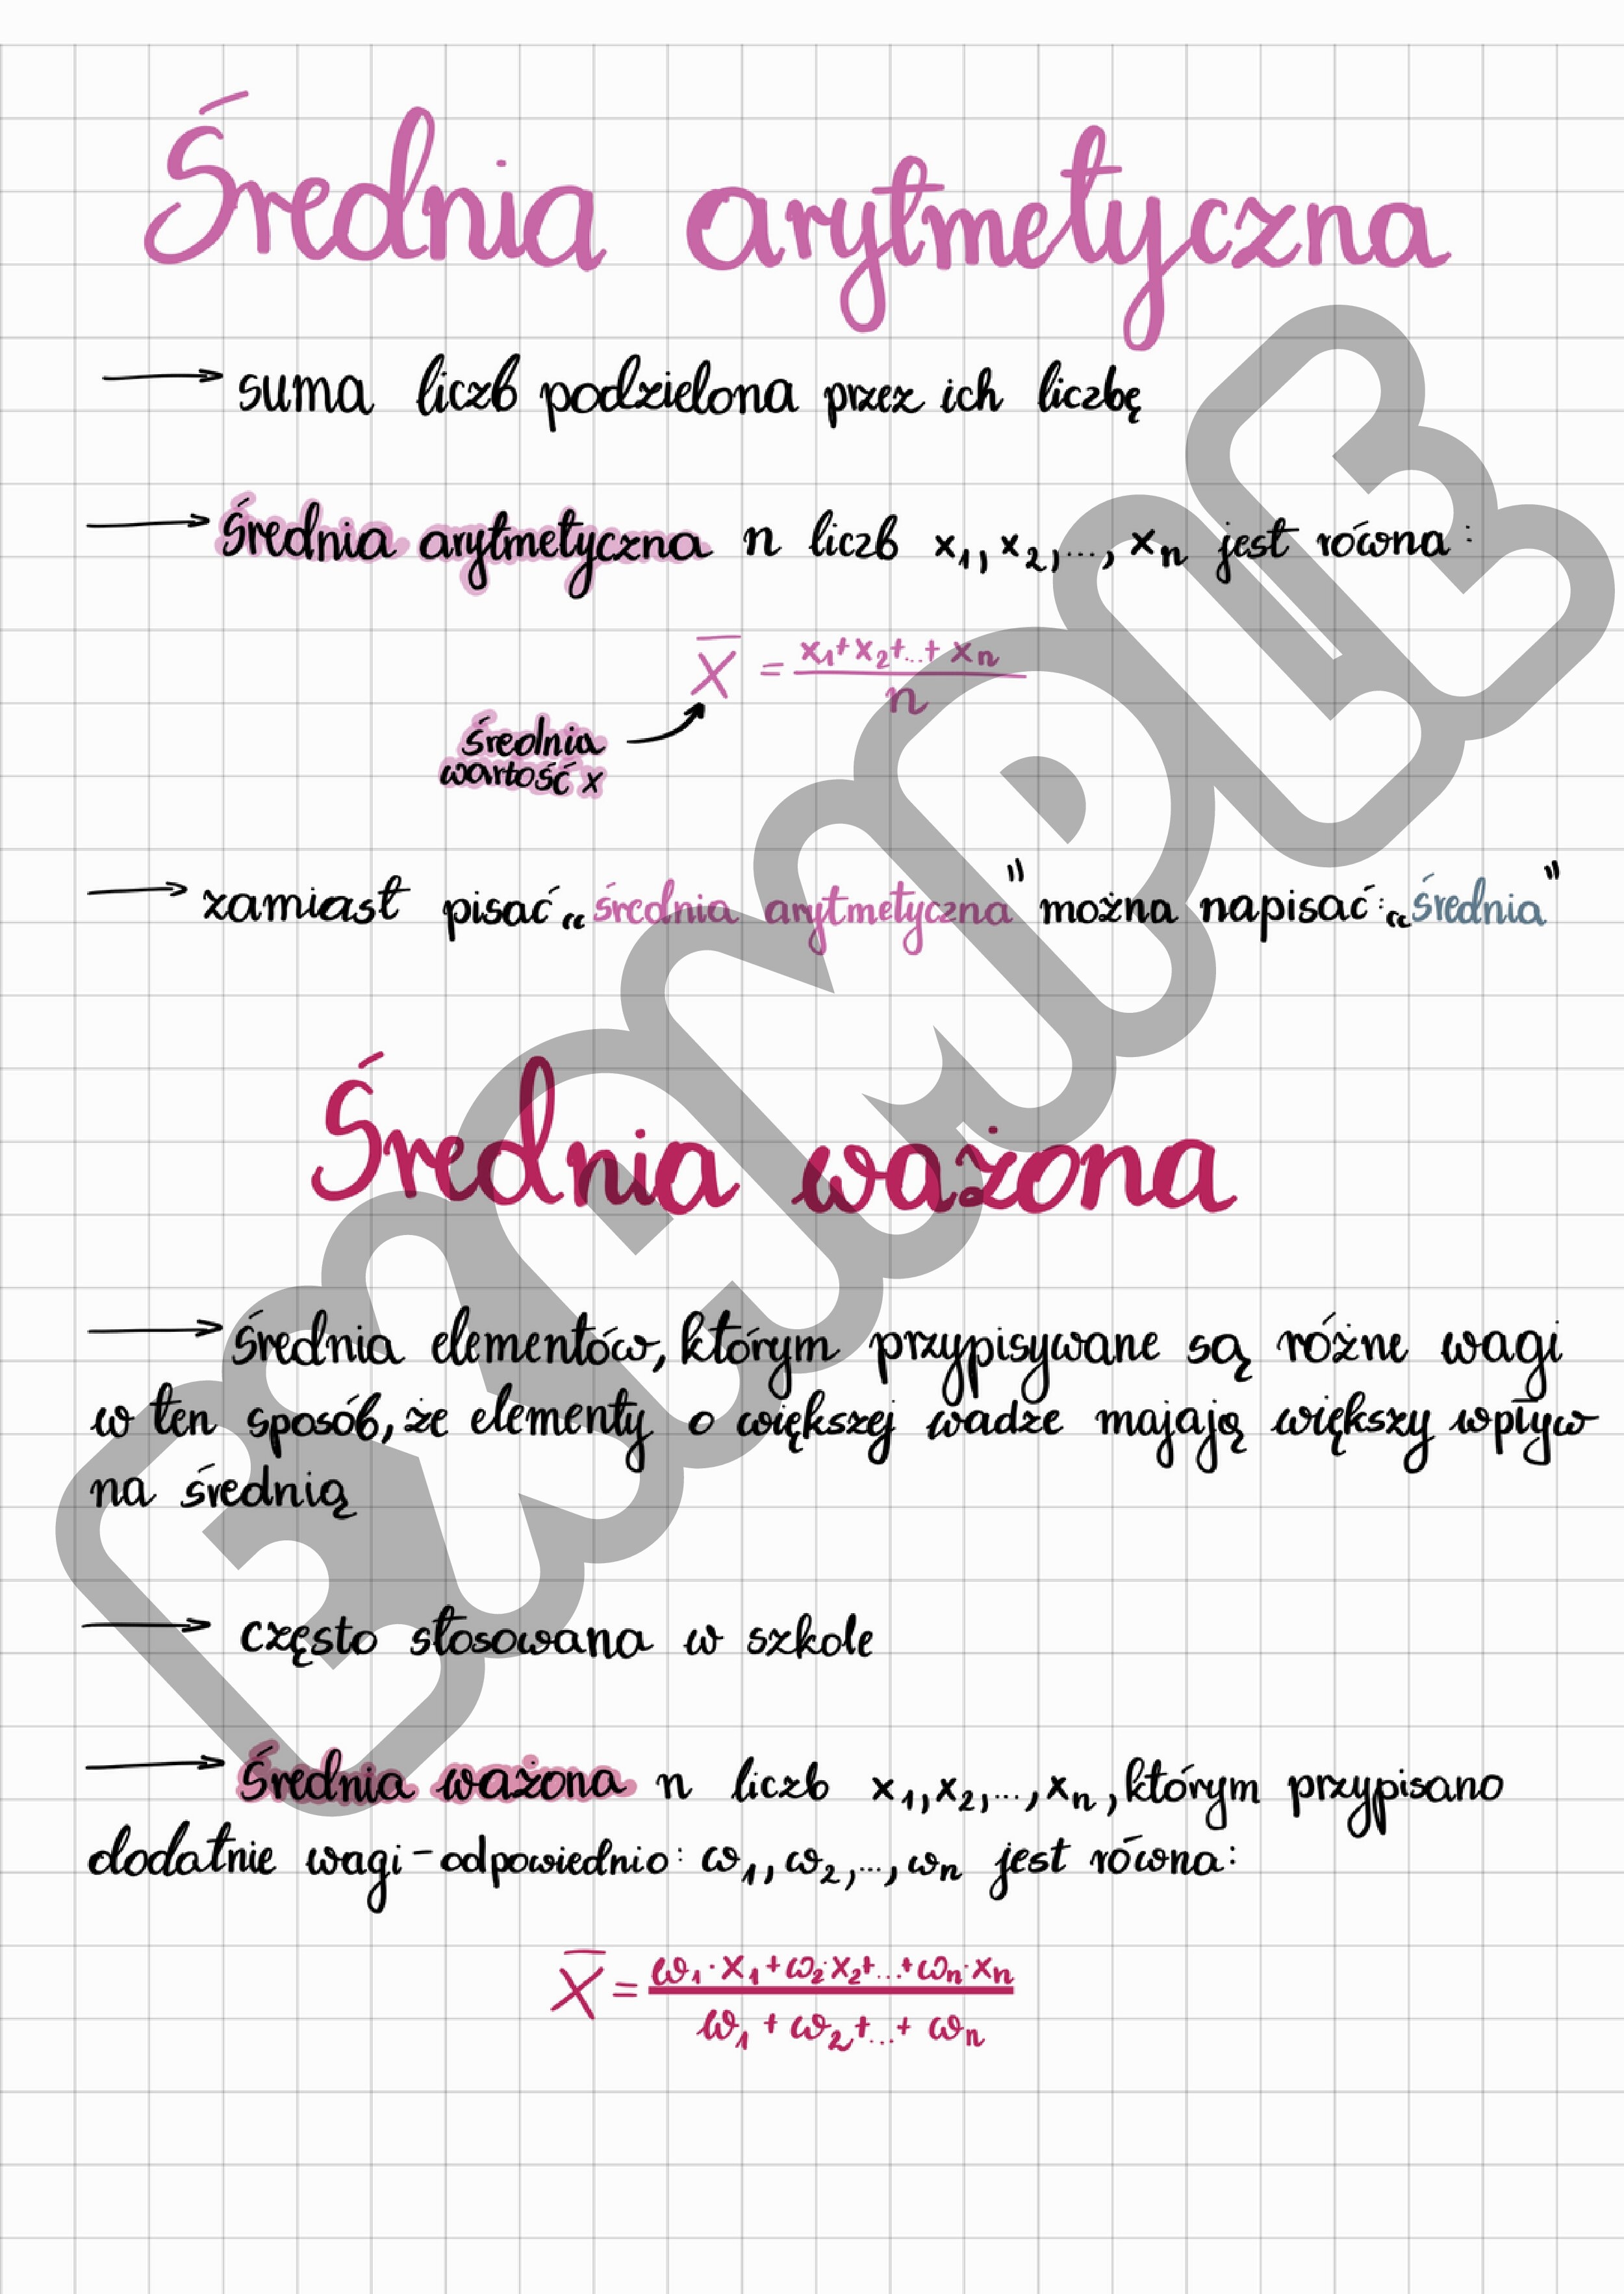 Średnia arytmetyczna
→ suma liczb podzielona przez ich liczbę
→ Średnia arytmetyczna n liczb x₁, x₂, ..., xₙ jest równa:
X̅ = (x₁+x₂+...+xₙ)/n
średnia
wartość x
→ zamiast pisać „średnia arytmetyczna" można napisać: „średnia"
Średnia ważona
→ średnia elementów, którym przypisywane są różne wagi
w ten sposób, że elementy o większej wadze majają większy wpływ
na średnią
→ często stosowana w szkole
→ Średnia ważona n liczb x₁, x₂, ..., xₙ, którym przypisano
dodatnie wagi - odpowiednio: ω₁, ω₂, ..., ωₙ jest równa:
X̅ = (ω₁·x₁+ω₂·x₂+...+ωₙ·xₙ)/(ω₁+ω₂+...+ωₙ)
EXAMPLE